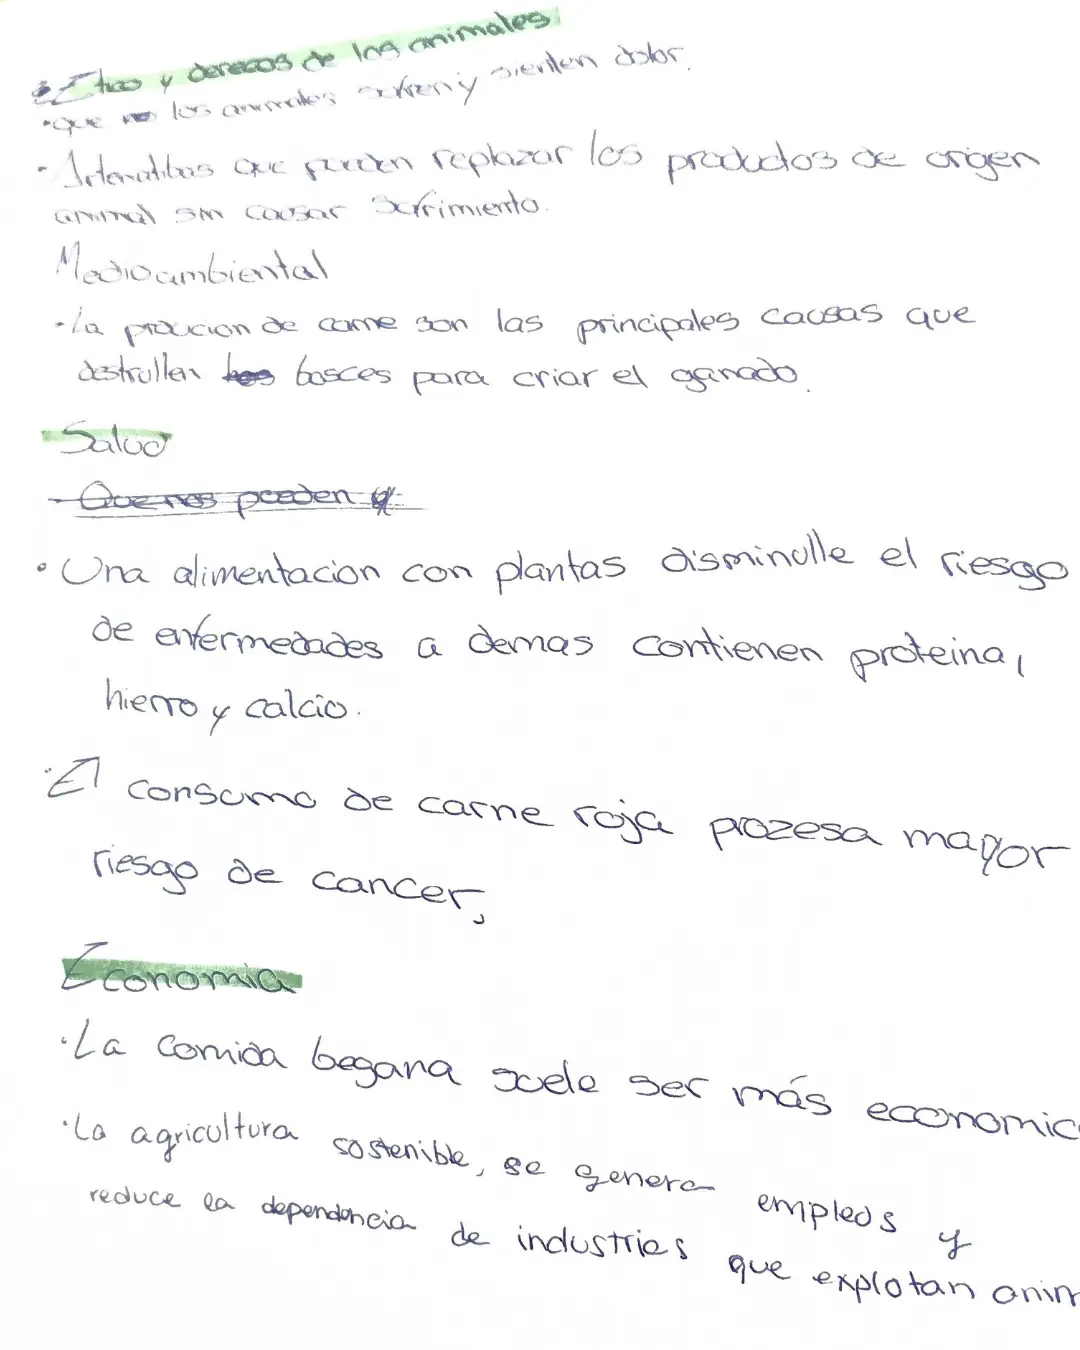 Etica y derecos de los animales
•que los animales sufren y sienten dolor.
• Alternatibas que pueden replazar los productos de origen
animal sin causar sufrimiento.
Medioambiental
•la proucion de carne son las principales causas que
destrullen bosces para criar el ganado.
Salud
- Que nos pueden
• Una alimentacion con plantas disminulle el riesgo
de enfermedades a demas contienen proteina,
hierro y calcio.
•El consumo de carne roja prozesa mayor
riesgo de cancer,
Economia
•La comida begana suele ser más economic
•La agricultura sostenible, se genera empleos y
reduce la dependencia de industrias que explotan anim